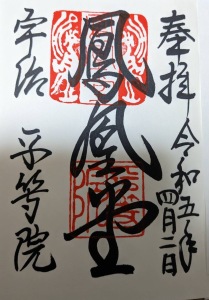 奉拝
令和五年
四月二日
鳳凰堂
宇治
平等院